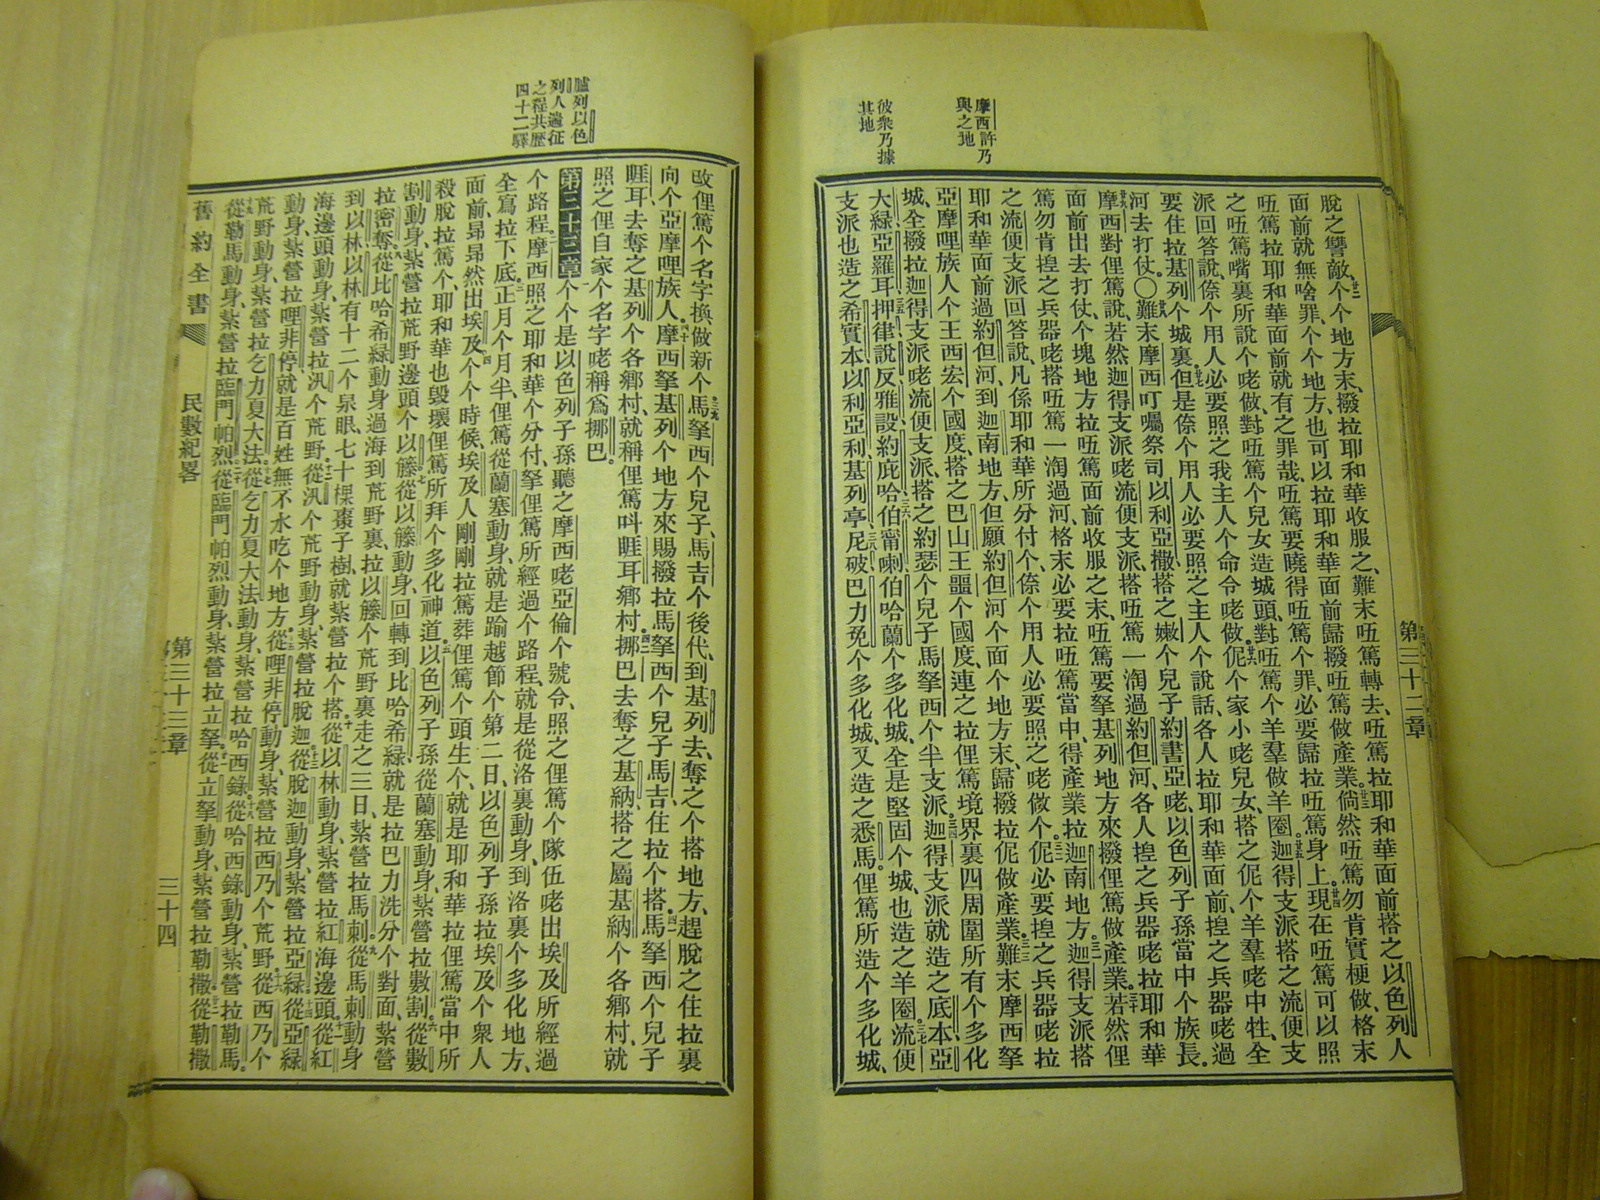 摩西許乃
與之地
彼衆乃據
其地
第三十二章
脫之讐敵、个个地方末、撥拉耶和華收服之、難末㕶篤轉去、㕶篤拉耶和華面前搭之以色列人
面前就無啥罪、个个地方、也可以拉耶和華面前歸撥㕶篤做產業、倘然㕶篤勿肯實梗做、格末
㕶篤拉耶和華面前就有之罪哉、㕶篤要曉得㕶篤个罪、必要歸拉㕶篤身上、現在㕶篤可以照
之㕶篤嘴裏所說个咾做、對㕶篤个兒女造城頭、對㕶篤个羊羣做羊圈、迦得支派搭之流便支
派回答說、倷个用人必要照之我主人个命令咾做、伲个家小咾兒女、搭之伲个羊羣咾中牲、全
要住拉基列个城裏、但是倷个用人必要照之主人个說話、各人拉耶和華面前、㨪之兵器咾過
河去打仗、〇難末摩西叮囑祭司以利亞撒、搭之嫩个兒子約書亞、咾以色列子孫當中个族長、
摩西對俚篤說、若然迦得支派咾流便支派、搭㕶篤一淘過約但河、各人㨪之兵器咾拉耶和華
面前出去打仗、个塊地方拉㕶篤面前收服之末、㕶篤要拏基列地方來撥俚篤做產業、若然俚
篤勿肯㨪之兵器咾搭㕶篤一淘過河、格末必要拉㕶篤當中、得產業拉迦南地方、迦得支派搭
之流便支派回答說、凡係耶和華所分付个、倷个用人必要照之咾做个、伲必要㨪之兵器咾拉
耶和華面前過約但河、到迦南地方、但願約但河个面个地方末、歸撥拉伲做產業、難末摩西拏
亞摩哩族人个王西宏个國度、搭之巴山王噩个國度、連之拉俚篤境界裏四周圍所有个多化
城、全撥拉迦得支派咾流便支派、搭之約瑟个兒子馬拏西个半支派、迦得支派就造之底本、亞
大綠亞羅耳、押律說反、雅設、約庇哈、伯甯喇、伯哈蘭、个多化城、全是堅固个城、也造之羊圈、流便
支派也造之希實本、以利亞利、基列亭、尼破、巴力免、个多化城、又造之悉馬、俚篤所造个多化城、
臚列以色
列人遄征
之程共歷
四十二驛
改俚篤个名字換做新个、馬拏西个兒子、馬吉个後代、到基列去、奪之个搭地方、趕脫之住拉裏
向个亞摩哩族人、摩西拏基列个地方來賜撥拉馬拏西个兒子馬吉、住拉个搭、馬拏西个兒子
睚耳、去奪之基列个各鄉村、就稱俚篤呌睚耳鄉村、挪巴去奪之基納、搭之屬基納个各鄉村、就
照之俚自家个名字咾稱爲挪巴。
第三十三章 个个是以色列子孫聽之摩西咾亞倫个號令、照之俚篤个隊伍咾出埃及所經過
个路程、摩西照之耶和華个分付、拏俚篤所經過个路程、就是從洛裏動身、到洛裏个多化地方、
全寫拉下底、正月个月半、俚篤從蘭塞動身、就是踰越節个第二日、以色列子孫拉埃及个衆人
面前、昻昻然出埃及、个个時候、埃及人剛剛拉篤葬俚篤个頭生个、就是耶和華拉俚篤當中所
殺脫拉篤个、耶和華也毀壞俚篤所拜个多化神道、以色列子孫從蘭塞動身、紮營拉數割、從數
割動身、紮營拉荒野邊頭个以籐、從以籐動身、回轉到比哈希綠、就是拉巴力洗分个對面、紮營
拉密奪、從比哈希綠動身、過海到荒野裏、拉以籐个荒野裏走之三日、紮營拉馬剌、從馬剌動身
到以林、以林有十二个泉眼、七十棵棗子樹、就紮營拉个搭、從以林動身、紮營拉紅海邊頭、從紅
海邊頭動身、紮營拉汛个荒野、從汛个荒野動身、紮營拉脫迦、從脫迦動身、紮營拉亞綠、從亞綠
動身、紮營拉哩非停、就是百姓無不水吃个地方、從哩非停動身、紮營拉西乃个荒野、從西乃个
荒野動身、紮營拉乞力夏大法、從乞力夏大法動身、紮營拉哈西錄、從哈西錄動身、紮營拉勒馬、
從勒馬動身、紮營拉臨門帕烈、從臨門帕烈動身、紮營拉立拏、從立拏動身、紮營拉勒撒、從勒撒
舊約全書 民數紀畧 第三十三章 三十四